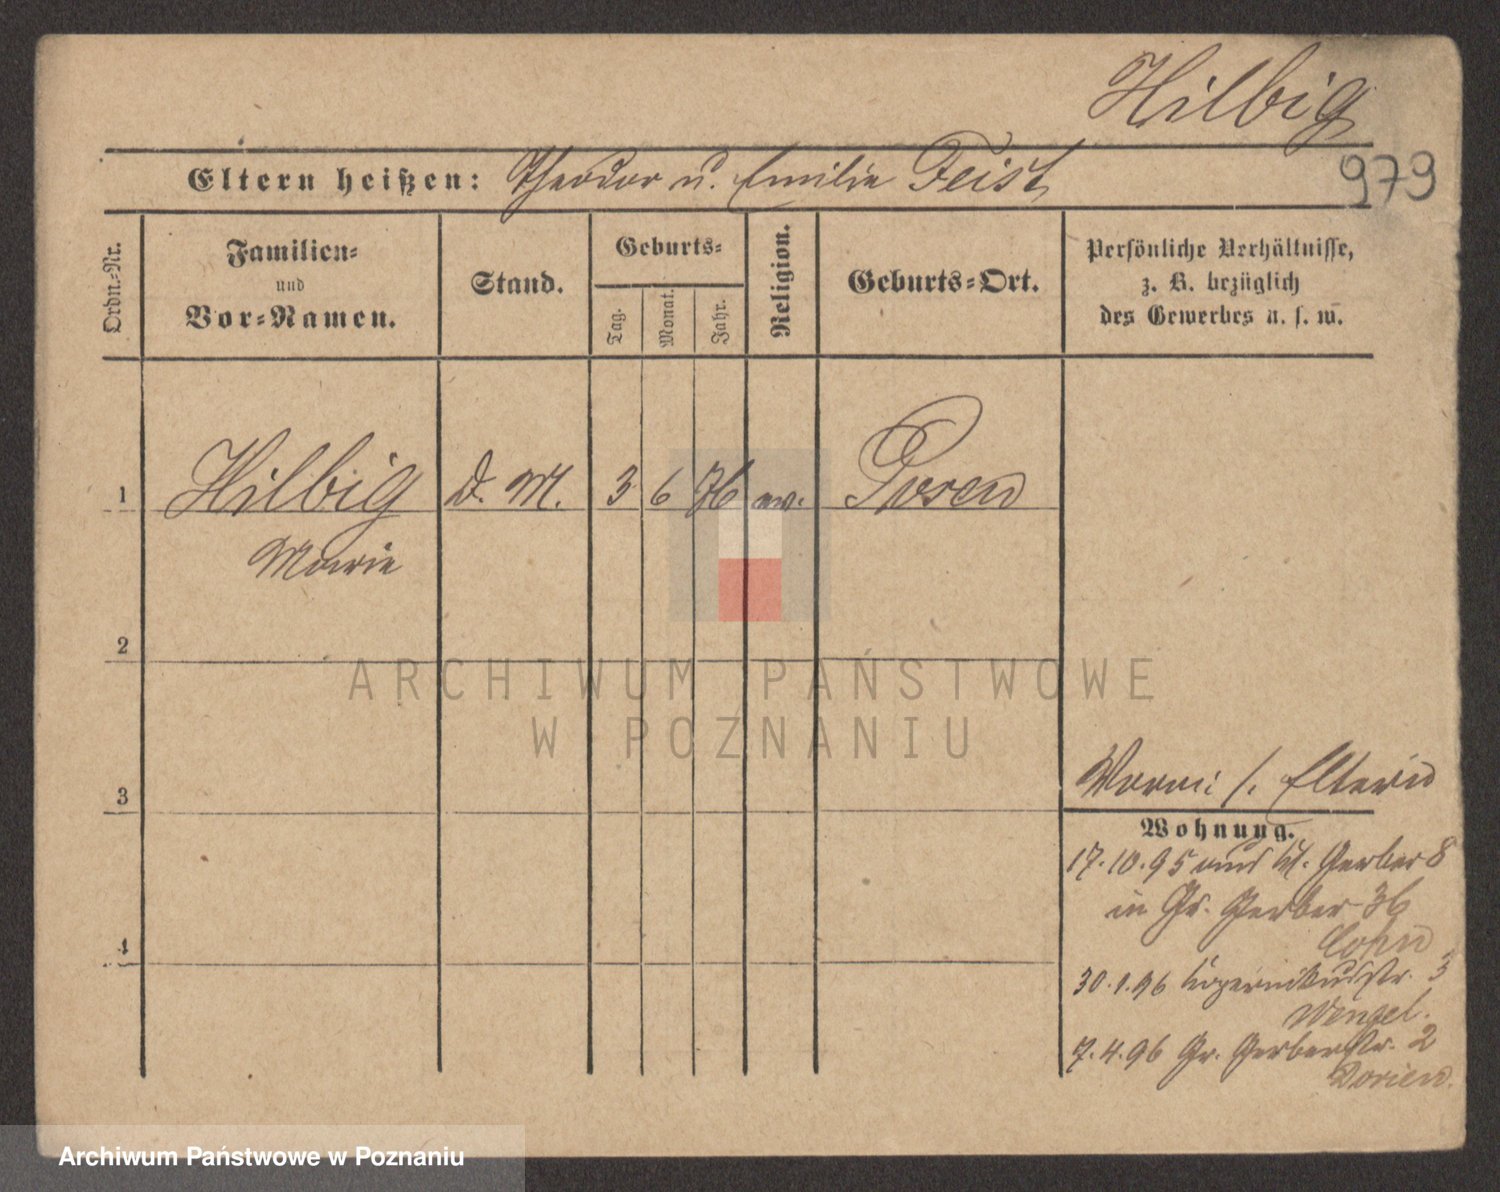 Hilbig
979
Eltern heißen: Theodor u. Emilie Feist
Ordn.-Nr.
Familien-
und
Vor-Namen.
Stand.
Geburts-
Tag.
Monat.
Jahr.
Religion.
Geburts-Ort.
Persönliche Verhältnisse,
z. B. bezüglich
des Gewerbes u. s. w.
1 Hilbig D. M. 3 6 76 ev. Posen
Marie
2
ARCHIWUM PAŃSTWOWE
W POZNANIU
3
4
Eltern
Wohnung.
17.10.95 aus Kl. Gerber 8
in Gr. Gerber 36
Cohn
30.1.96 Kopernikusstr. 3
Wengel.
7.4.96 Gr. Gerberstr. 2
Dorien.
Archiwum Państwowe w Poznaniu